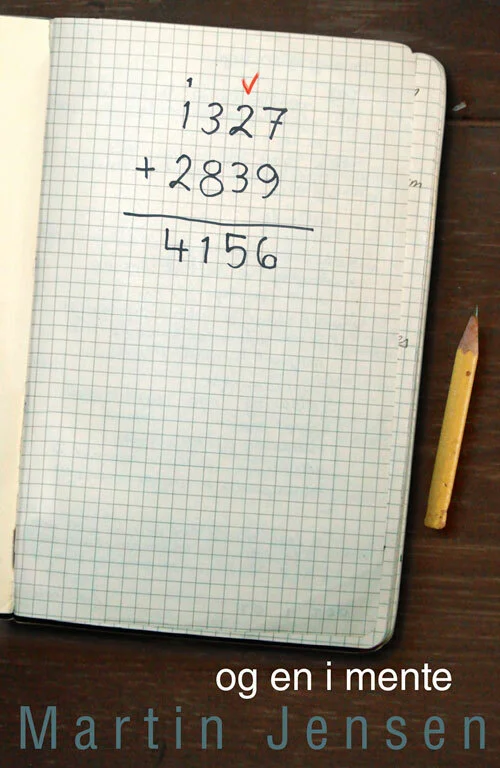 1 ✓
1327
+ 2839
4156
og en i mente
Martin Jensen